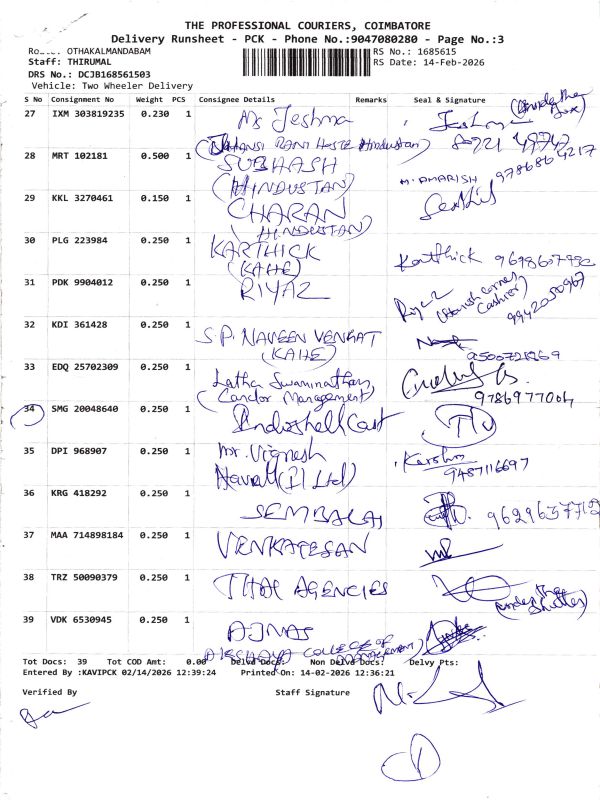 THE PROFESSIONAL COURIERS, COIMBATORE
Delivery Runsheet - PCK - Phone No.:9047080280 - Page No.:3
OTHAKALMANDABAM
RS No.: 1685615
Staff: THIRUMAL
RS Date: 14-Feb-2026
DRS No.: DCJB168561503
Vehicle: Two Wheeler Delivery
S No Consignment No Weight PCS Consignee Details Remarks Seal & Signature
27 IXM 303819235 0.230 1 Ms Jeshma
28 MRT 102181 0.500 1 SUBHASH
(HINDUSTAN)
29 KKL 3270461 0.150 1 CHARAN
(HINDUSTAN)
30 PLG 223984 0.250 1 KARTHICK Karthick
(KAHE)
31 PDK 9904012 0.250 1 RIYAZ Riyaz
32 KDI 361428 0.250 1 S.P. NAVEEN VENKAT
(KAHE)
33 EDQ 25702309 0.250 1 Latha Swaminathan
(Candor Management)
34 SMG 20048640 0.250 1 Indoshell Cast
35 DPI 968907 0.250 1 Mr. Vignesh
9487116697
36 KRG 418292 0.250 1
37 MAA 714898184 0.250 1 VENKATESAN
38 TRZ 50090379 0.250 1 THAI AGENCIES
39 VDK 6530945 0.250 1 AJMAS
AKSHAYA COLLEGE OF
Tot Docs: 39 Tot COD Amt: 0.00 Delvd Docs: Non Delvd Docs: Delvy Pts:
Entered By :KAVIPCK 02/14/2026 12:39:24 Printed On: 14-02-2026 12:36:21
Verified By Staff Signature